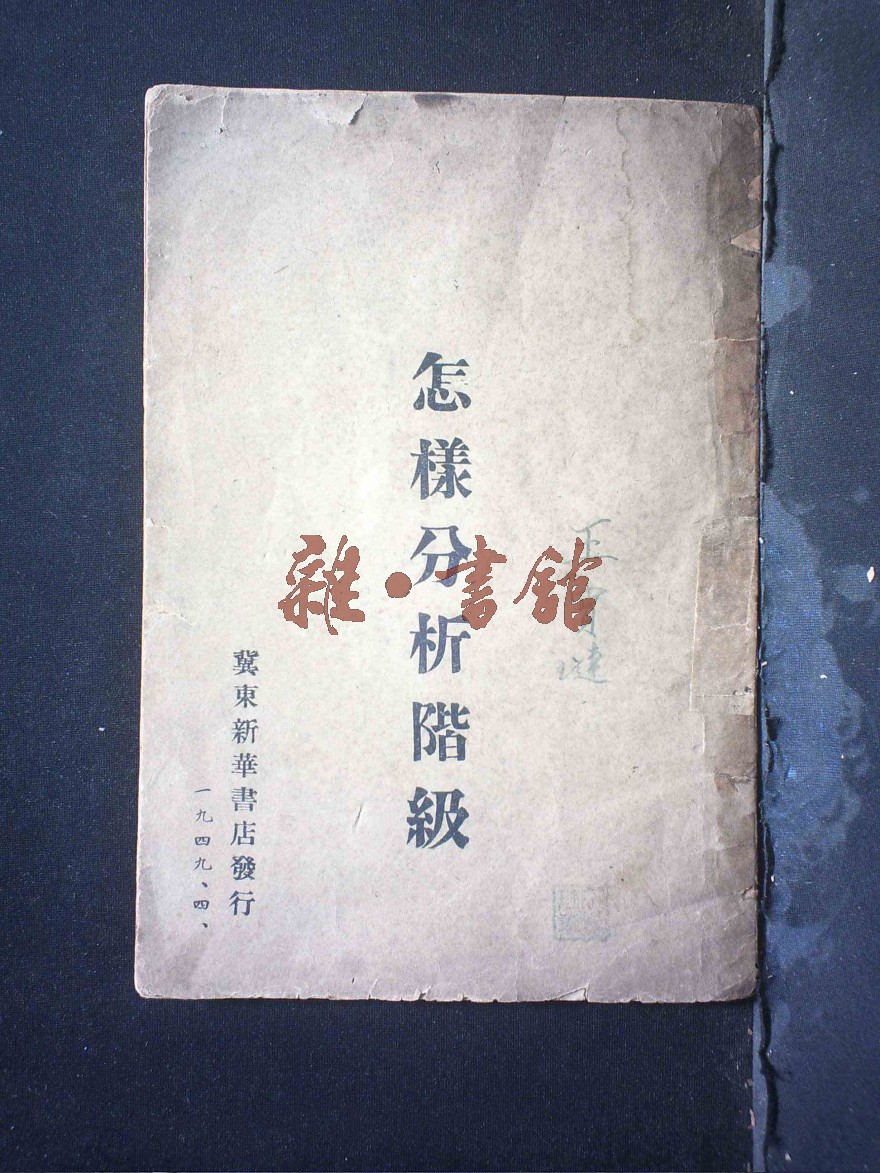 怎樣分析階級
冀東新華書店發行
一九四九、四、
雜·書館